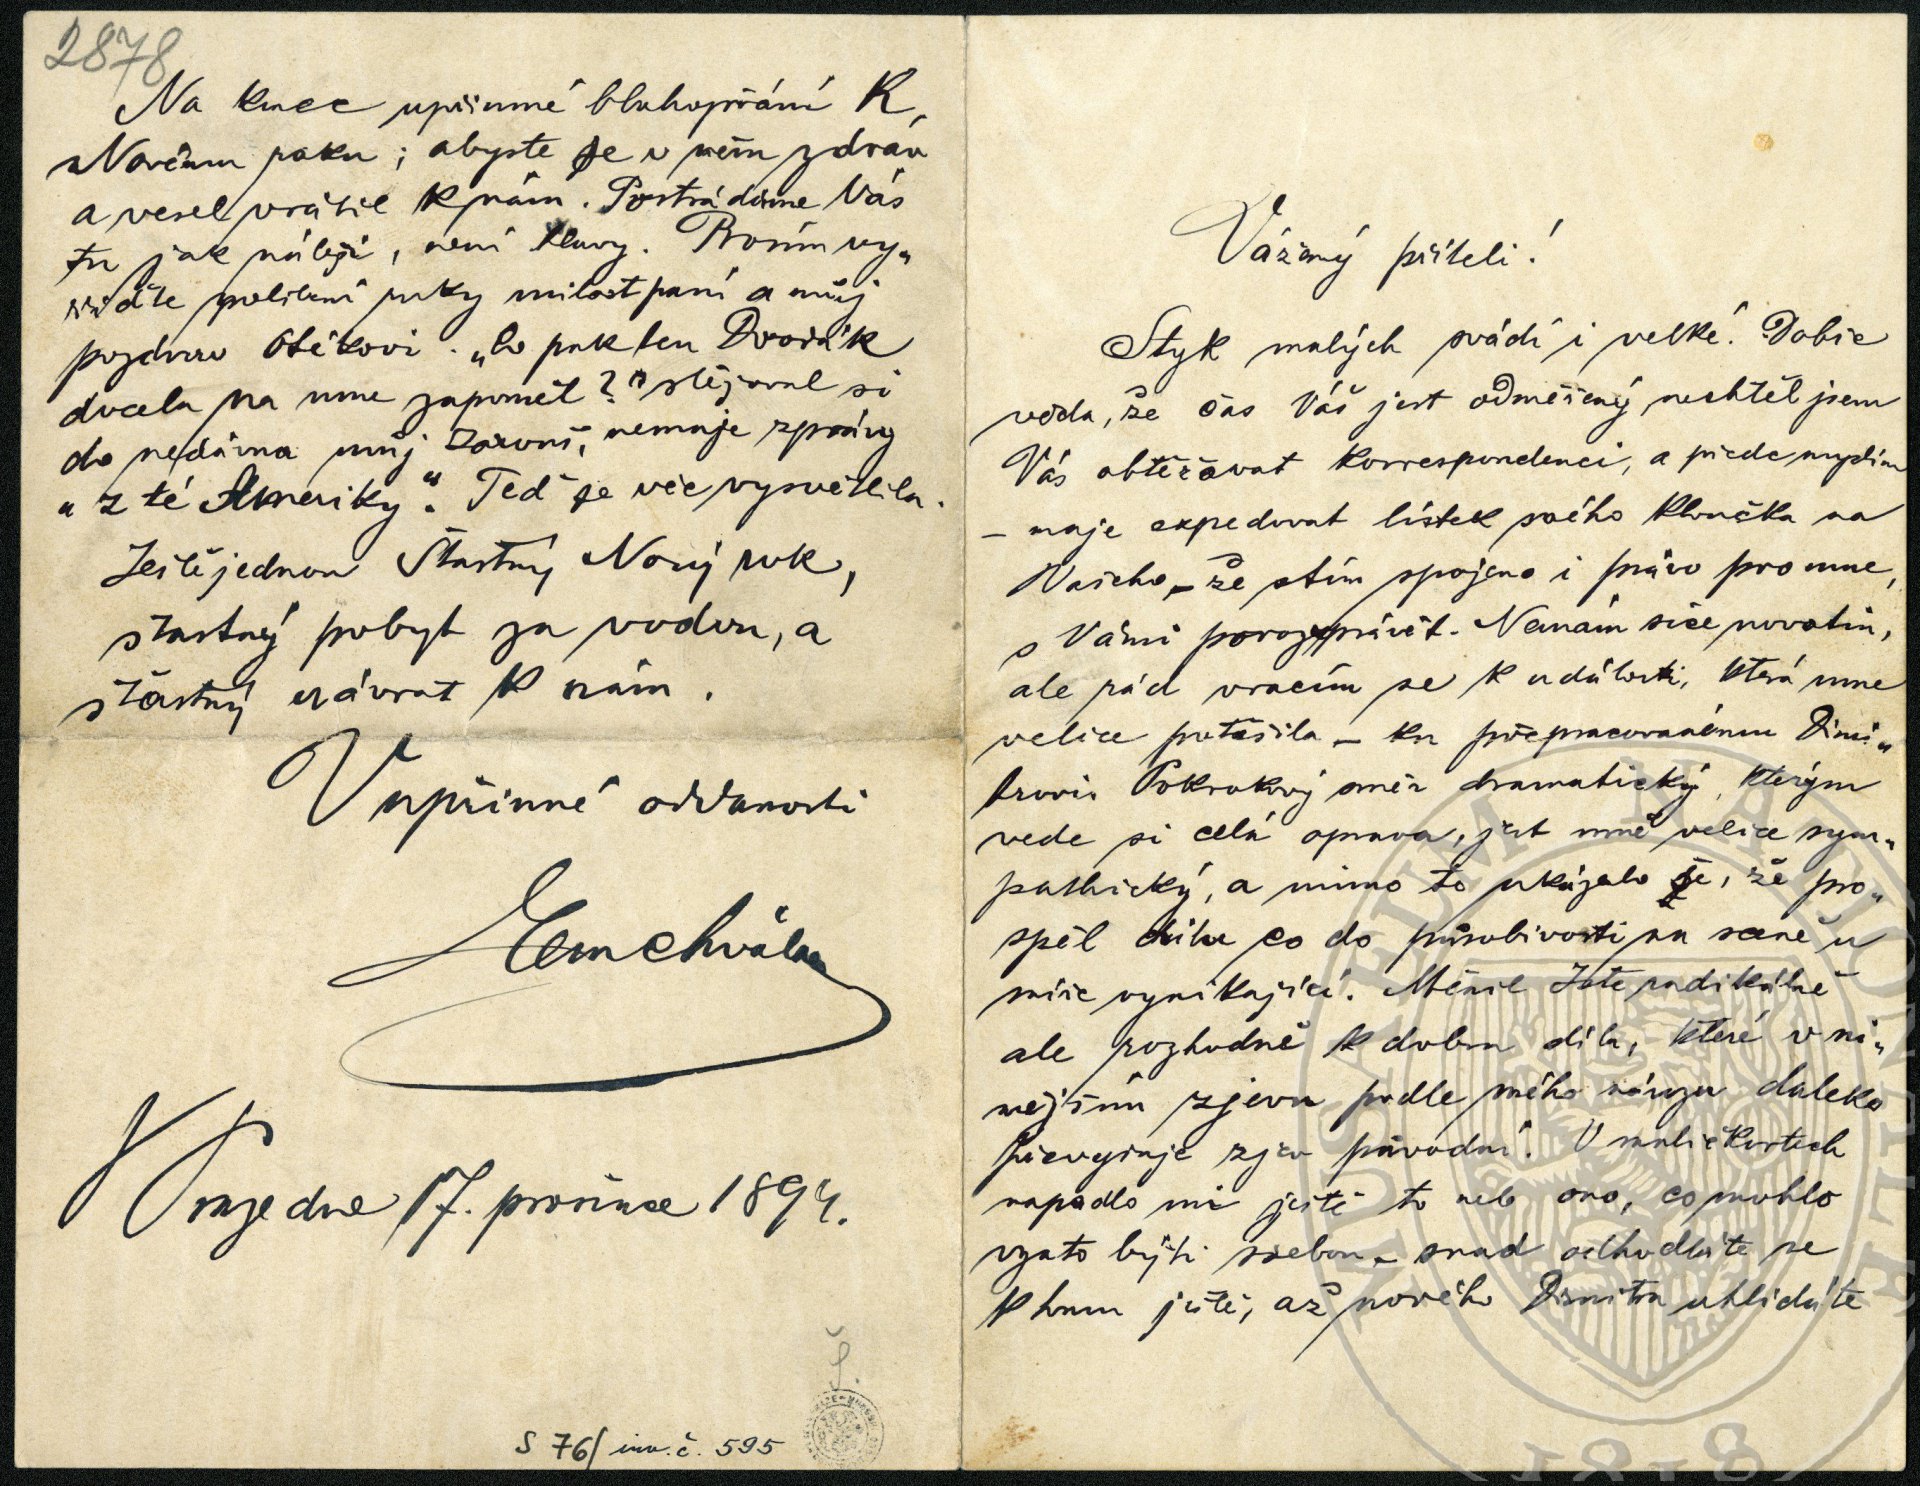 2878
Vážený příteli!
Styk malých svádí i velké. Dobře
věda, že čas Váš jest odměřený nechtěl jsem
Vás obtěžovat korrespondencí, a přede myslím
– maje expedovat lístek svého kloučka na
Vašeho – že s tím spojeno i právo pro mne,
s Vámi porozprávět. Nemám sice novotin,
ale rád vracím se k události, která mne
velice potěšila – ku přepracovanému Dimi„
trovi. Pokrokový směr dramatický, kterým
vede si celá oprava, jest mně velice sym„
pathický, a mimo to ukázalo se, že pro„
spěl dílu co do působivosti na scéně u
míře vynikající. Měnil jste radikálně
ale rozhodně k dobru díla, které v ni„
nejším zjevu podle mého názoru daleko
převyšuje zjev původní. V maličkostech
napadlo mi ještě to neb ono, co mohlo
vzato býti sebou – snad odhodláte se
k tomu ještě, až nového Dimitra uhlídáte
Na konec upřimné blahopřání k
Novému roku; abyste se v něm zdráv
a vesel vrátil k nám. Postrádáme Vás
tu jak náleží, není hlavy. Prosím vy„
řiďte políbení ruky milostpaní a můj
pozdrav Otíkovi. „Co pak ten Dvořák
docela na mne zapomněl?" stěžoval si
do nedávna můj Jarouš, nemaje zprávy
„z té Ameriky". Teď se věc vysvětlila.
Ještě jednou Šťastný Nový rok,
šťastný pobyt za vodou, a
šťastný návrat k nám.
V upřimné oddanosti
Em Chvála
V Praze dne 17. prosince 1894.
Š.
S 76/ inv. č. 595
MUSEUM NATIONALE
1818